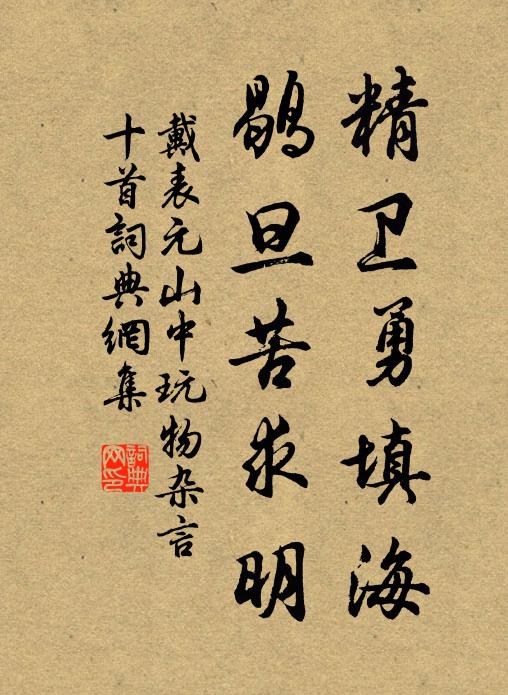 精卫勇填海
鶡旦苦求明
戴表元山中玩物杂言
十首詞典網集
詞典
网印